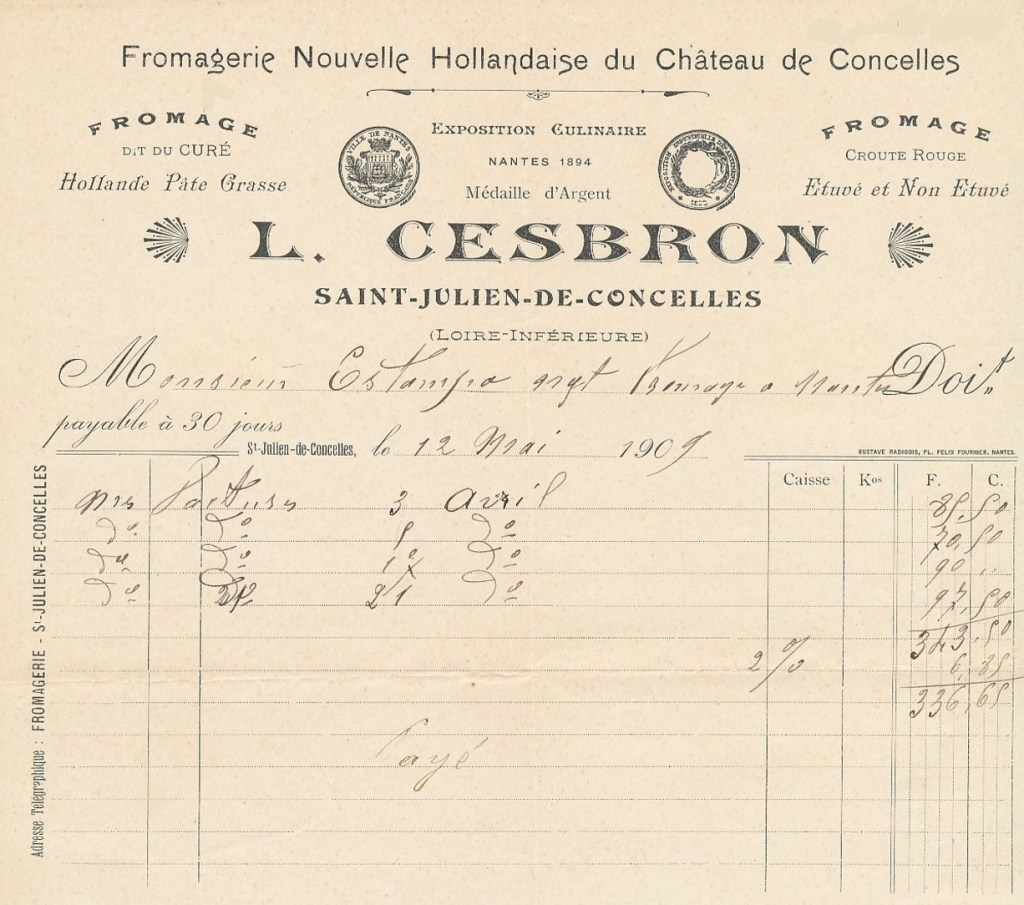 Fromagerie Nouvelle Hollandaise du Château de Concelles
FROMAGE
DIT DU CURÉ
Hollande Pâte Grasse
VILLE DE NANTES
RÉPUBLIQUE FRANÇAISE
EXPOSITION CULINAIRE
NANTES 1894
Médaille d'Argent
FROMAGE
CROUTE ROUGE
Etuvé et Non Etuvé
L. CESBRON
SAINT-JULIEN-DE-CONCELLES
(LOIRE-INFÉRIEURE)
Monsieur Estampo ngt Fromage a Nantes Doit
payable à 30 jours
St-Julien-de-Concelles, le 12 Mai 1905
GUSTAVE RADIGOIS, PL. FELIX FOURNIER, NANTES.
Caisse Kos F. C.
Factures 3 Avril 85,50
do do 5 do 70,50
do do do 90 "
do do 21 do 97,50
343,50
2 % 6,85
336,65
Payé
Adresse Télégraphique : FROMAGERIE - St-JULIEN-DE-CONCELLES